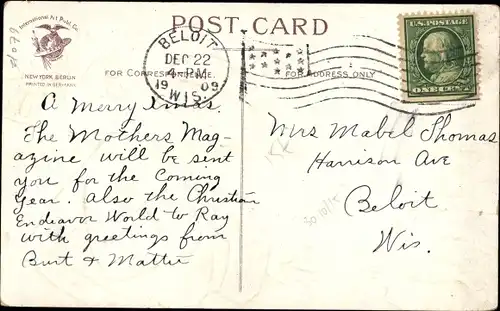 POST CARD
International Art Publ. Co.
NEW YORK BERLIN
PRINTED IN GERMANY
FOR CORRESPONDENCE.
FOR ADDRESS ONLY
BELOIT
DEC 22
4 PM
1909
WIS.
U.S. POSTAGE
A Merry Xmas.
The Mothers Mag-
azine will be sent
you for the Coming
Year. Also the Christian
Endeavor World to Ray
with greetings from
Burt & Mattie
Mrs Mabel Thomas
Harrison Ave
Beloit
Wis.